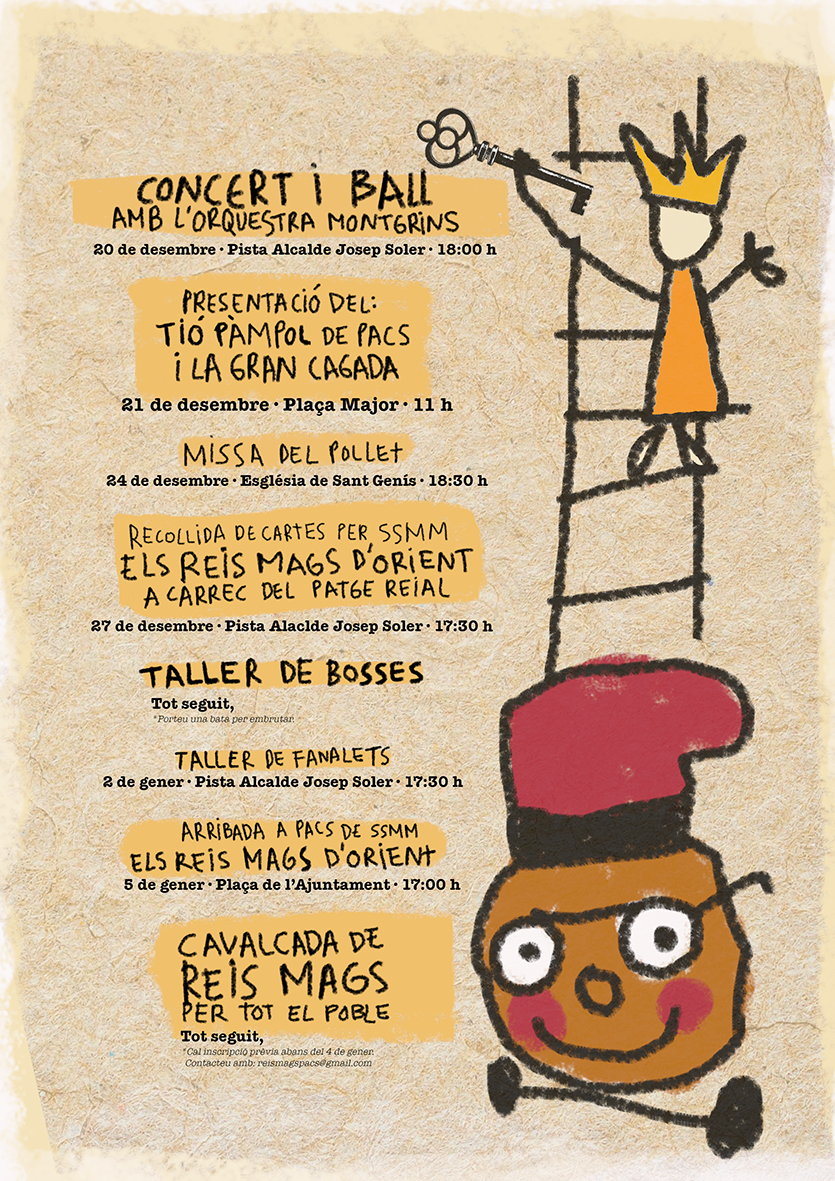 CONCERT I BALL
AMB L'ORQUESTRA MONTGRINS
20 de desembre · Pista Alcalde Josep Soler · 18:00 h
PRESENTACIÓ DEL:
TIÓ PÀMPOL DE PACS
I LA GRAN CAGADA
21 de desembre · Plaça Major · 11 h
MISSA DEL POLLET
24 de desembre · Església de Sant Genís · 18:30 h
RECOLLIDA DE CARTES PER SSMM
ELS REIS MAGS D'ORIENT
A CÀRREC DEL PATGE REIAL
27 de desembre · Pista Alaclde Josep Soler · 17:30 h
TALLER DE BOSSES
Tot seguit,
*Porteu una bata per embrutar.
TALLER DE FANALETS
2 de gener · Pista Alcalde Josep Soler · 17:30 h
ARRIBADA A PACS DE SSMM
ELS REIS MAGS D'ORIENT
5 de gener · Plaça de l'Ajuntament · 17:00 h
CAVALCADA DE
REIS MAGS
PER TOT EL POBLE
Tot seguit,
*Cal inscripció prèvia abans del 4 de gener.
Contacteu amb: reismagspacs@gmail.com